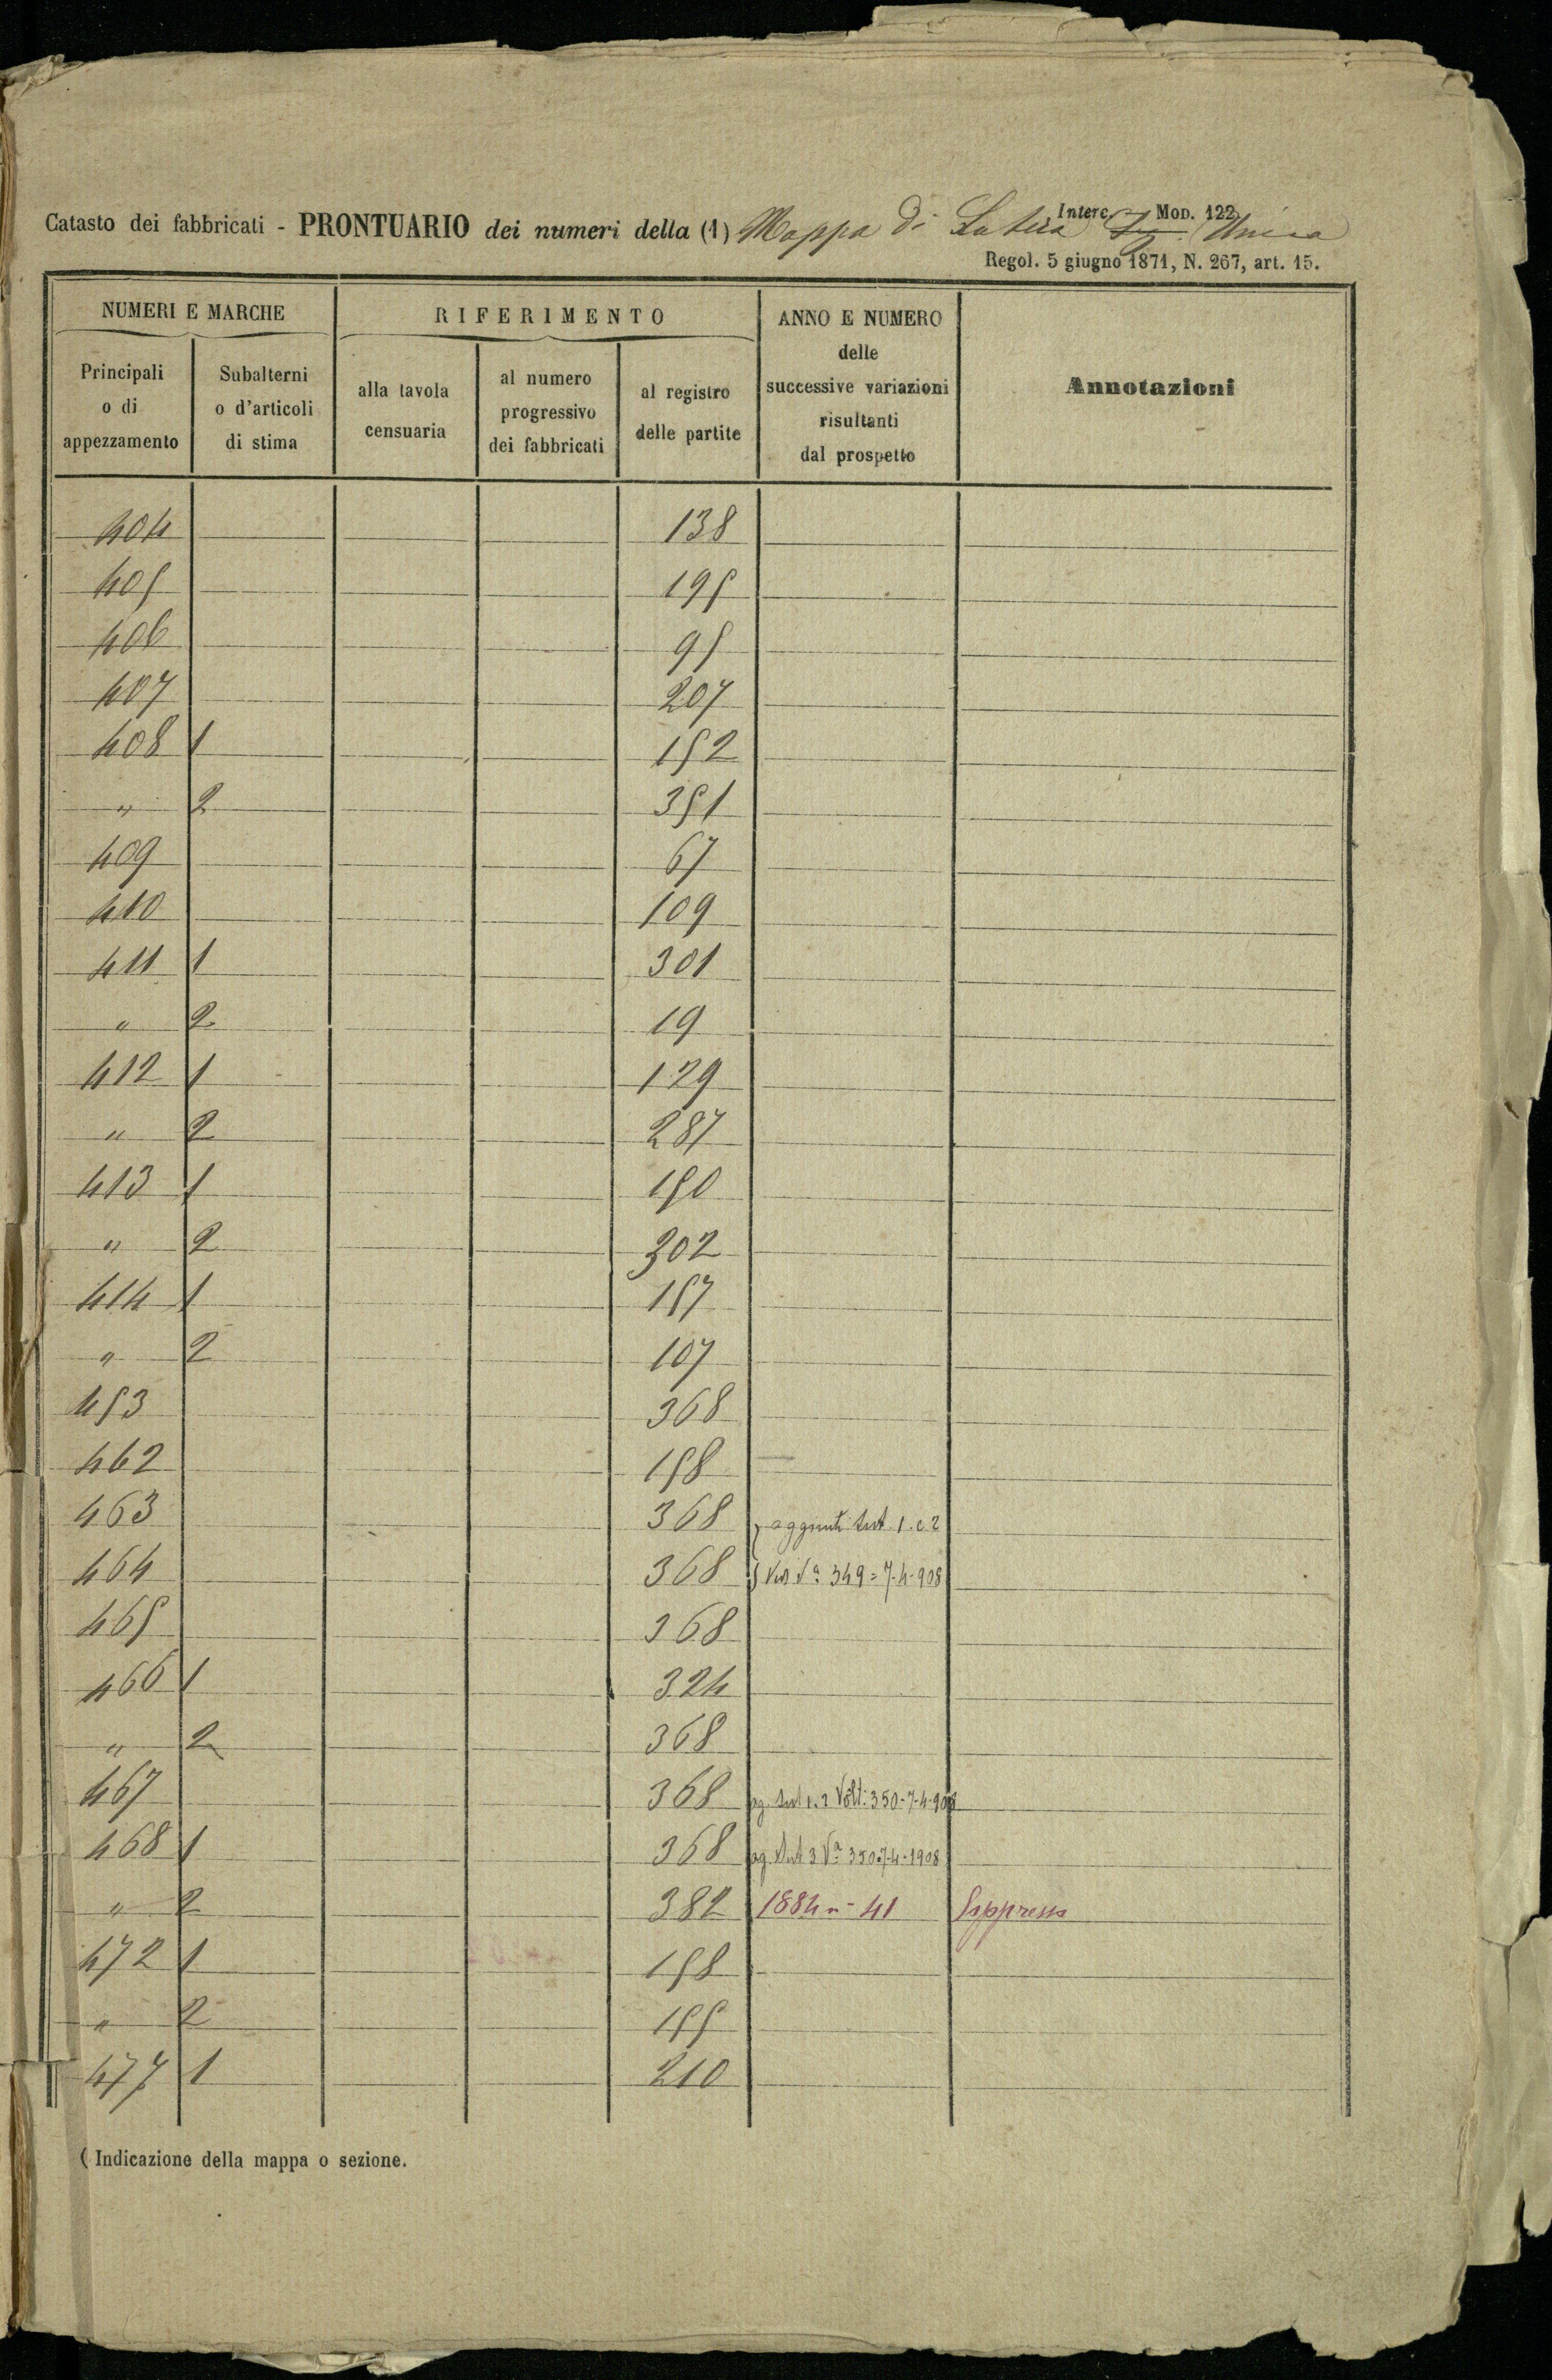 Interc. Mod. 122
Catasto dei fabbricati - PRONTUARIO dei numeri della (1) Mappa di Latera Unica
Regol. 5 giugno 1871, N. 267, art. 15.
NUMERI E MARCHE
RIFERIMENTO
ANNO E NUMERO
delle
successive variazioni
risultanti
dal prospetto
Annotazioni
Principali
o di
appezzamento
Subalterni
o d'articoli
di stima
alla tavola
censuaria
al numero
progressivo
dei fabbricati
al registro
delle partite
404 138
405 195
406 95
407 207
408 1 152
" 2 351
409 67
410 109
411 1 301
" 2 19
412 1 129
" 2 287
413 1 150
" 2 302
414 1 157
" 2 107
453 368
462 158
463 368 aggiunti sub. 1. e 2
464 368 349 = 7-4-908
465 368
466 1 324
" 2 368
467 368 ag. sub 1. 2 Volt: 350-7-4-908
468 1 368 ag. sub 3 Va 350-7-4-1908
" 2 382 1884 n- 41 Soppresso
472 1 158
" 2 155
477 1 210
( Indicazione della mappa o sezione.